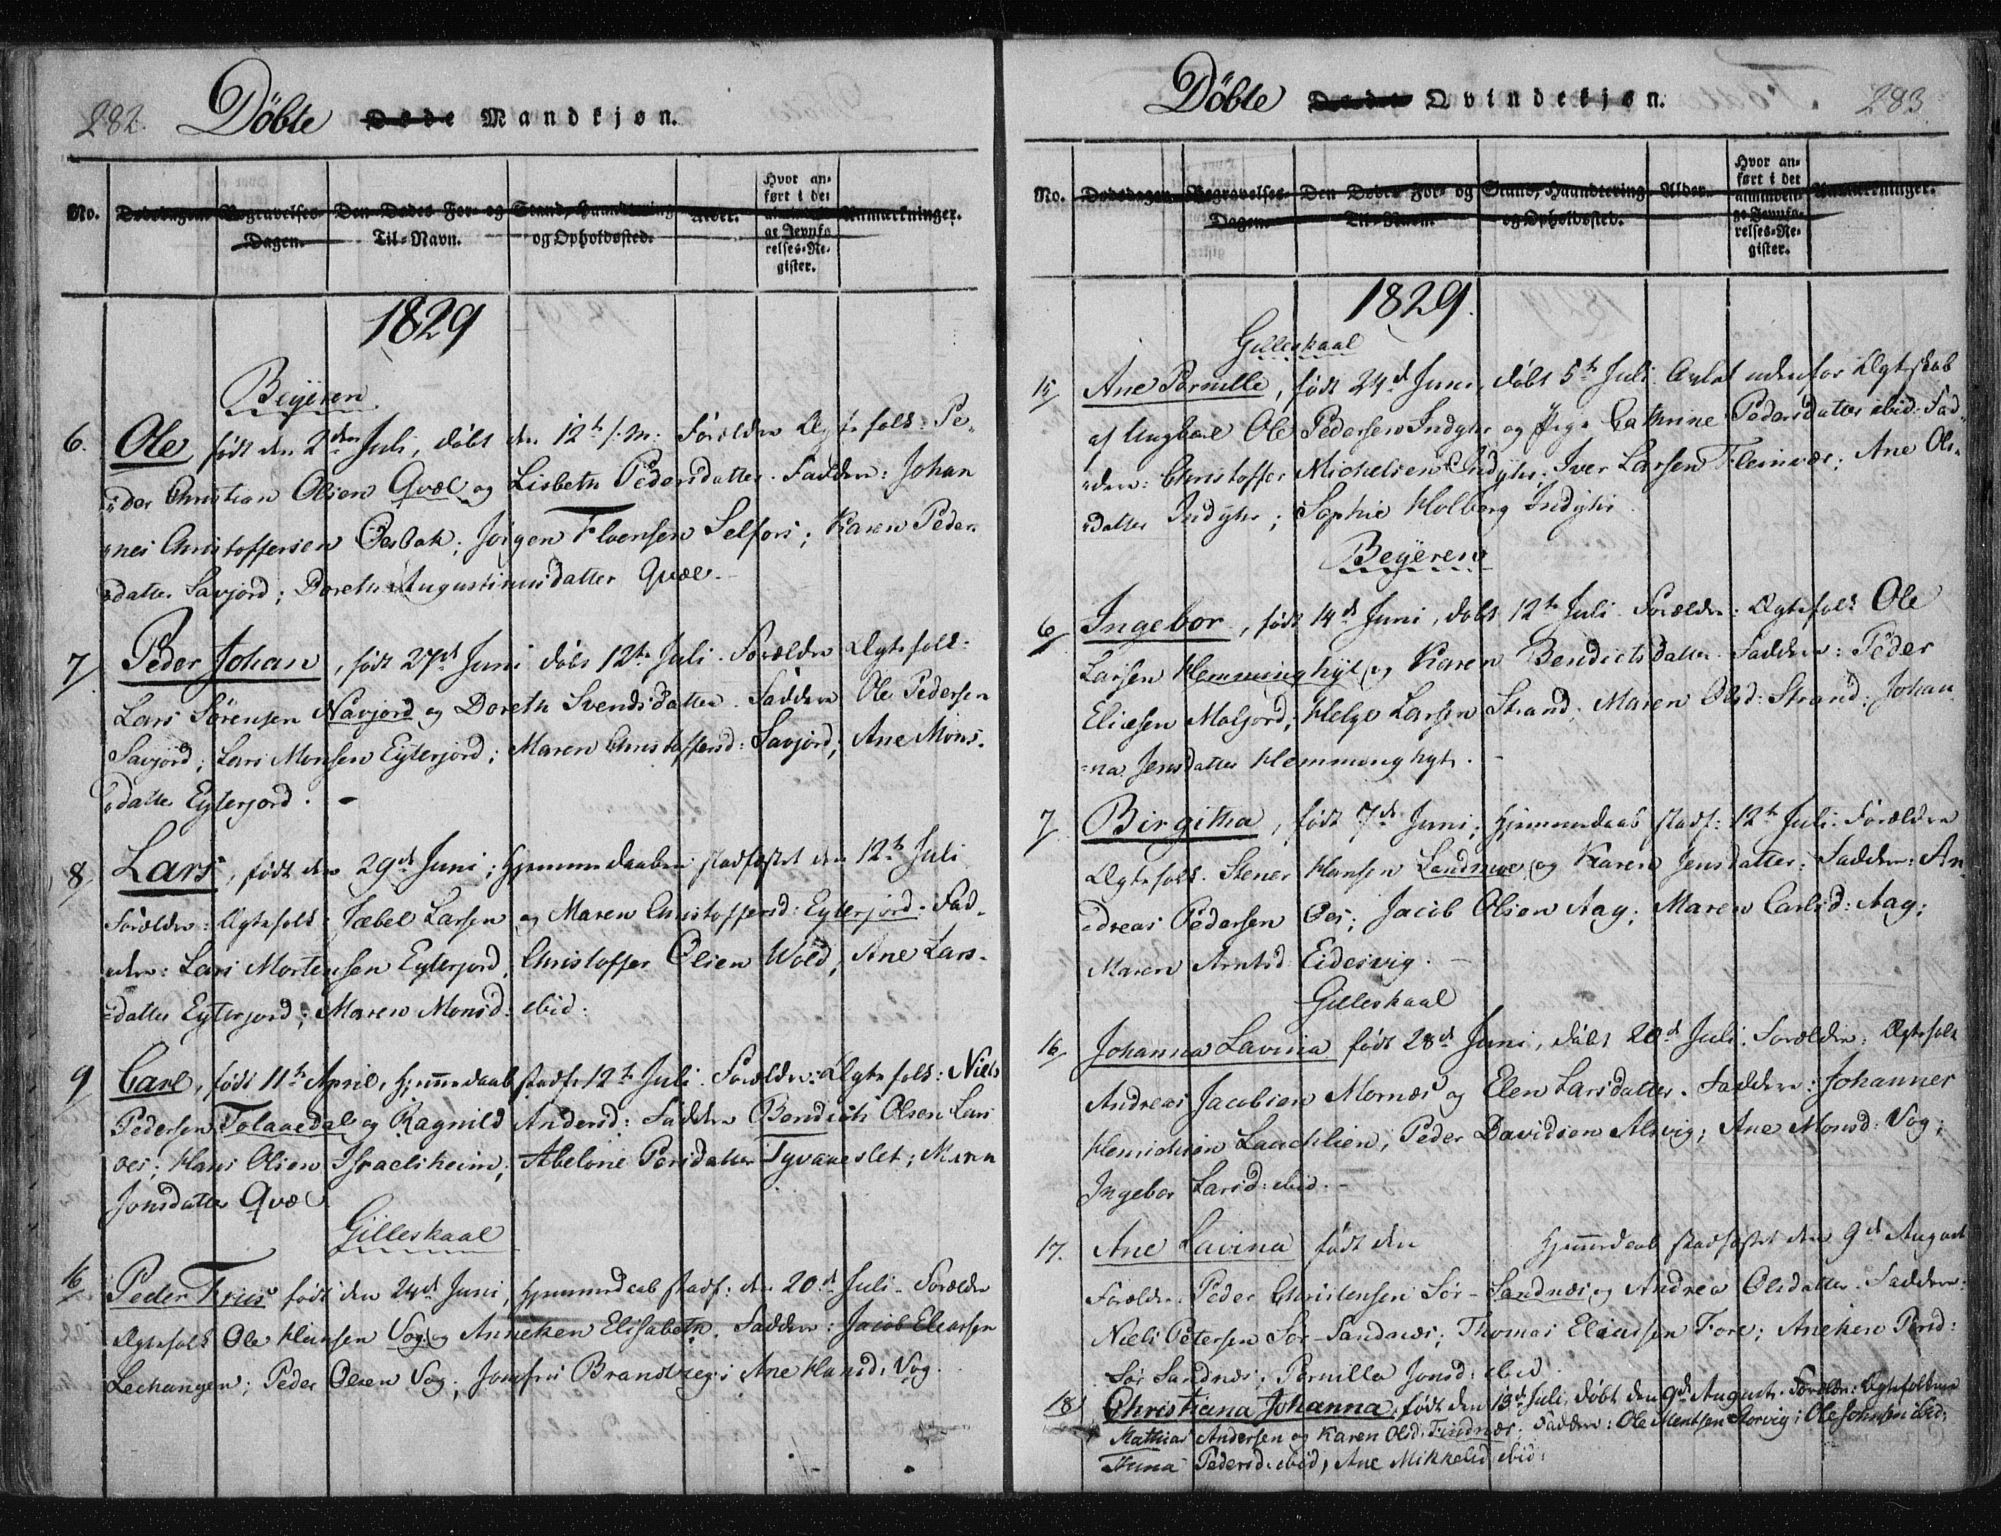 282. Döbte Døde Mandkjøn.
No. Dødsdagen. Begravelses-Dagen. Den Dødes For- og Til-Navn. Stand, Haandtering og Opholdssted. Alder. Hvor anført i det almindelige Jevnførelses-Register. Anmærkninger.
1829
Beyeren
6. Ole, født den 2den Juli, døbt den 12th s.m. Forældre Ægtefolk Pe-
der Christian Olsen Qvæl og Lisbeth Pedersdatter. Faddere: Johan-
nes Christoffersen Oesbak; Jørgen Floensen Selfors; Karen Peder-
datter Savjord; Doreth Augustinusdatter Qvæl.
7 Peder Johan, født 27de Juni døbt 12te Juli. Forældre Ægtefolk:
Lars Sørensen Navjord og Doreth Svendsdatter. Faddere Ole Pedersen
Savjord; Lars Monsen Eyterjord; Maren Christoffersd: Savjord; Ane Mons-
datter Eyterjord. -
8 Lars, født den 29de Juni; hjemmedaaben stadfæstet den 12te Juli
Forældre: Ægtefolk: Jæbel Larsen og Maren Christoffersd: Eyterjord. Fad-
dere: Lars Mortensen Eyterjord, Christoffer Olsen Wold, Ane Lars-
datter Eyterjord; Maren Monsd. ibid:
9 Carl, født 11te April, hjemmedaab stadf: 12te Juli. Forældre: Ægtefolk: Niels
Pedersen Tolaaedal og Ragnild Andersd: Faddere Bendicts Olsen Lars
oes; Hans Olsen Israelsheim; Abelone Persdatter Tyvaaeslet; Maren
Jonsdatter Qvæl
Gilleskaal
16 Peder Friis født den 24de Juni, hjemmedaab stadf: den 20de Juli. Forældre
Ægtefolk Ole Hansen Vog og Anneken Elisabeth. Faddere: Jacob Eliasen
Lechangen; Peder Olsen Vog; Jomfru Brandtzeg; Ane Hansd: Vog.
Döbte Døde Qvindekjøn. 283
No. Dødsdagen. Begravelses-Dagen. Den Dødes For- og Til-Navn. Stand, Haandtering og Opholdssted. Alder. Hvor anført i det almindelige Jevnførelses-Register. Anmærkninger.
1829.
Gilleskaal
15 Ane Pernille, født 24de Juni, døbt 5te Juli. Avlet udenfor Ægteskab
af Ungkarl Ole Pedersen Indyhr og Pige Cathrine Pedersdatter ibid. Fad-
dere: Christoffer Michelsen Indyhr; Iver Larsen Fleinvær; Ane Ols-
datter Indyhr; Sophie Holberg Indyhr.
Beyeren
6 Ingebor, født 14de Juni, døbt 12te Juli. Forældre: Ægtefolk Ole
Larsen Hemminghyt og Karen Bendictsdatter. Faddere: Peder
Eliesen Moljord; Helge Larsen Strand; Maren Olsd: Strand; Johan-
na Jensdatter Hemminghyt. -
7 Birgitha, født 7de Juni; hjemmedaab stadf: 12te Juli. Forældre
Ægtefolk. Stener Hansen Landmoe og Karen Jensdatter: Faddere: An-
dreas Pedersen Oes; Jacob Olsen Aag; Maren Carlsd: Aag;
Maren Arntsd Eidesvig. -
Gilleskaal
16 Johanna Lavina født 28de Juni, døbt 20de Juli. Forældre: Ægtefolk
Andreas Jacobsen Mornæs og Elen Larsdatter. Faddere: Johannes
Henrichsen Laachlien; Peder Davidsen Alsvig; Ane Monsd: Vog;
Ingebor Larsd: ibid. -
17. Ane Lavina født den hjemmedaab stadfæstet den 9de August
Forældre Peder Christensen Sør-Sandnæs og Andrea Olsdatter. Faddere:
Niels Petersen Sør-Sandnæs; Thomas Eliassen Fore; Aneken Persd:
Sør Sandnæs; Pernilla Jonsd: ibid
18 Christiana Johanna, født den 13de Juli, døbt den 9de August. Forældre: Ægtefolkene
Mathias Andersen og Karen Olsd: Findnæs; Faddere: Ole Mentsen Storvig; Ole Johnsen ibid;
Anna Pedersd: ibid, Ane Mikkelsd ibid: